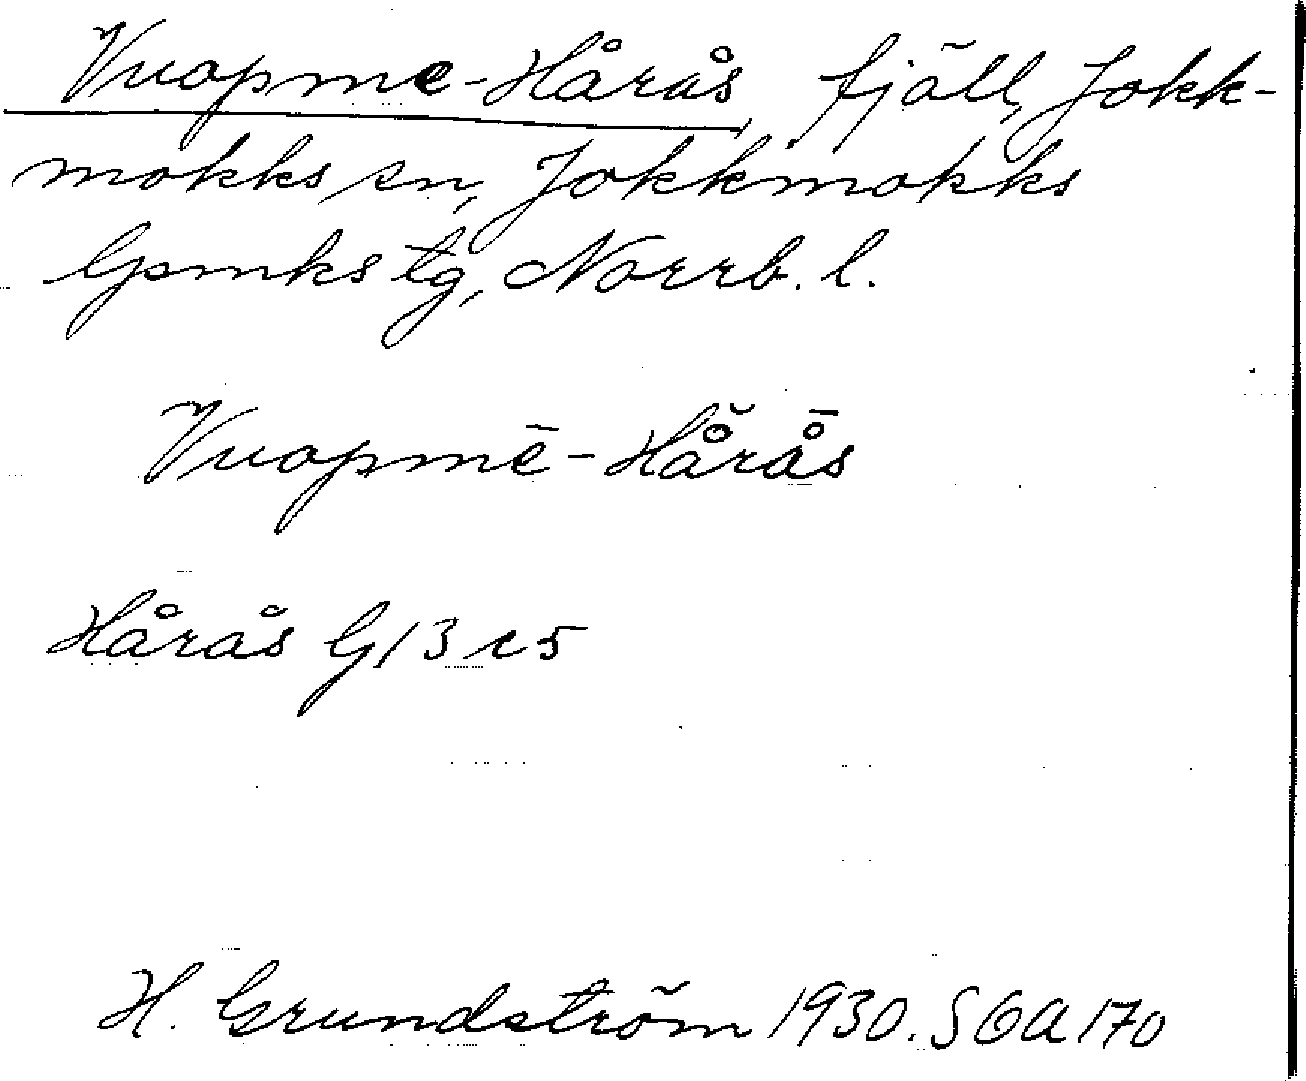 Vuopme-Hårås, fjäll, Jokk-
mokks sn, Jokkmokks
lpmks tg, Norrb. l.
Vuopmē-Hå̆rå̄s
Hårås G13c5
H. Grundström 1930. SOA 170